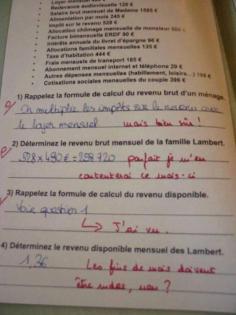 Redevance audiovisuelle 120 €
Salaire brut mensuel de Madame 1585 €
Alimentation par mois 240 €
Impôt sur le revenu 528 €
Allocation chômage mensuelle de monsieur
Facture bimensuelle ERDF 90 €
Intérêts annuels du livret d'épargne 96 €
Allocations familiales mensuelles 125 €
Taxe d'habitation 444 €
Frais mensuels de transport 185 €
Abonnement mensuel internet et téléphone 29 €
Autres dépenses mensuelles (habillement, loisirs...)
Cotisations sociales mensuelles du couple 396 €
1) Rappelez la formule de calcul du revenu brut d'un ménage.
On multiplie les impôts sur le revenu avec
le loyer mensuel mais bien sûr !
2) Déterminez le revenu brut mensuel de la famille Lambert.
528 x 490 € = 258 720 parfait je m'en
contenterai ce mois-ci
3) Rappelez la formule de calcul du revenu disponible.
Voir question 1
↳ J'ai vu.
4) Déterminez le revenu disponible mensuel des Lambert.
1,36 Les fins de mois doivent
être rudes, non ?